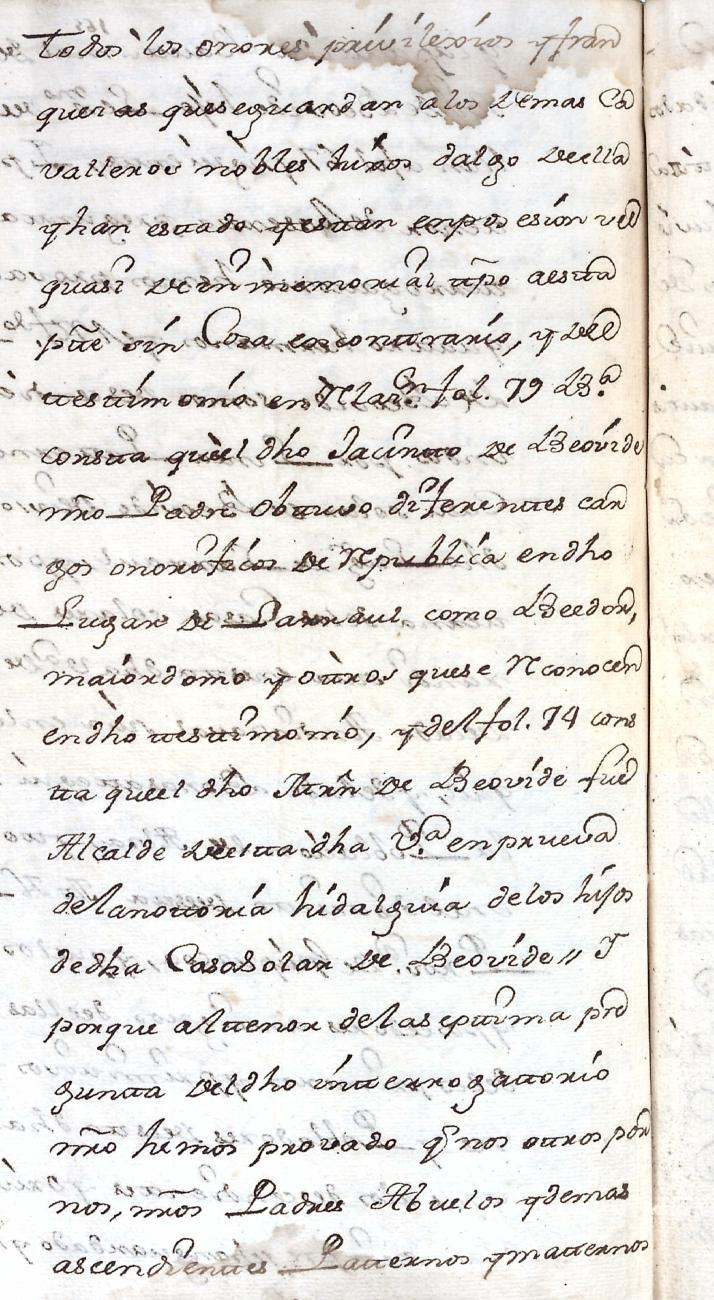 Todos los onores privilexios y fran
quezas que se guardan a los demas Ca
valleros nobles hixos dalgo de ella
y han estado y estan en posesion vel
quasi de inmemorial tpo a esta
pte sin Cosa en contrario, y del
testimonio en Relaz.on fol. 79 B.a
consta que el dho Jacinto de Beovide
nro Padre obtuvo diferentes car
gos onorificos de Republica en dho
Lugar de Larraul como Beedor,
maiordomo y otros que se Reconocen
en dho testimonio, y del fol. 74 cons
ta que el dho Mrn de Beovide fue
Alcalde de esta dha V.a en prueva
de la nottoria hidalguia de los hijos
de dha Casa Solar de Beovide // Y
porque al tenor de la septima pre
gunta del dho interrogattorio
nro hemos provado q nos otros por
nos, nros Padres Abuelos y demas
ascendientes Patternos y matternos